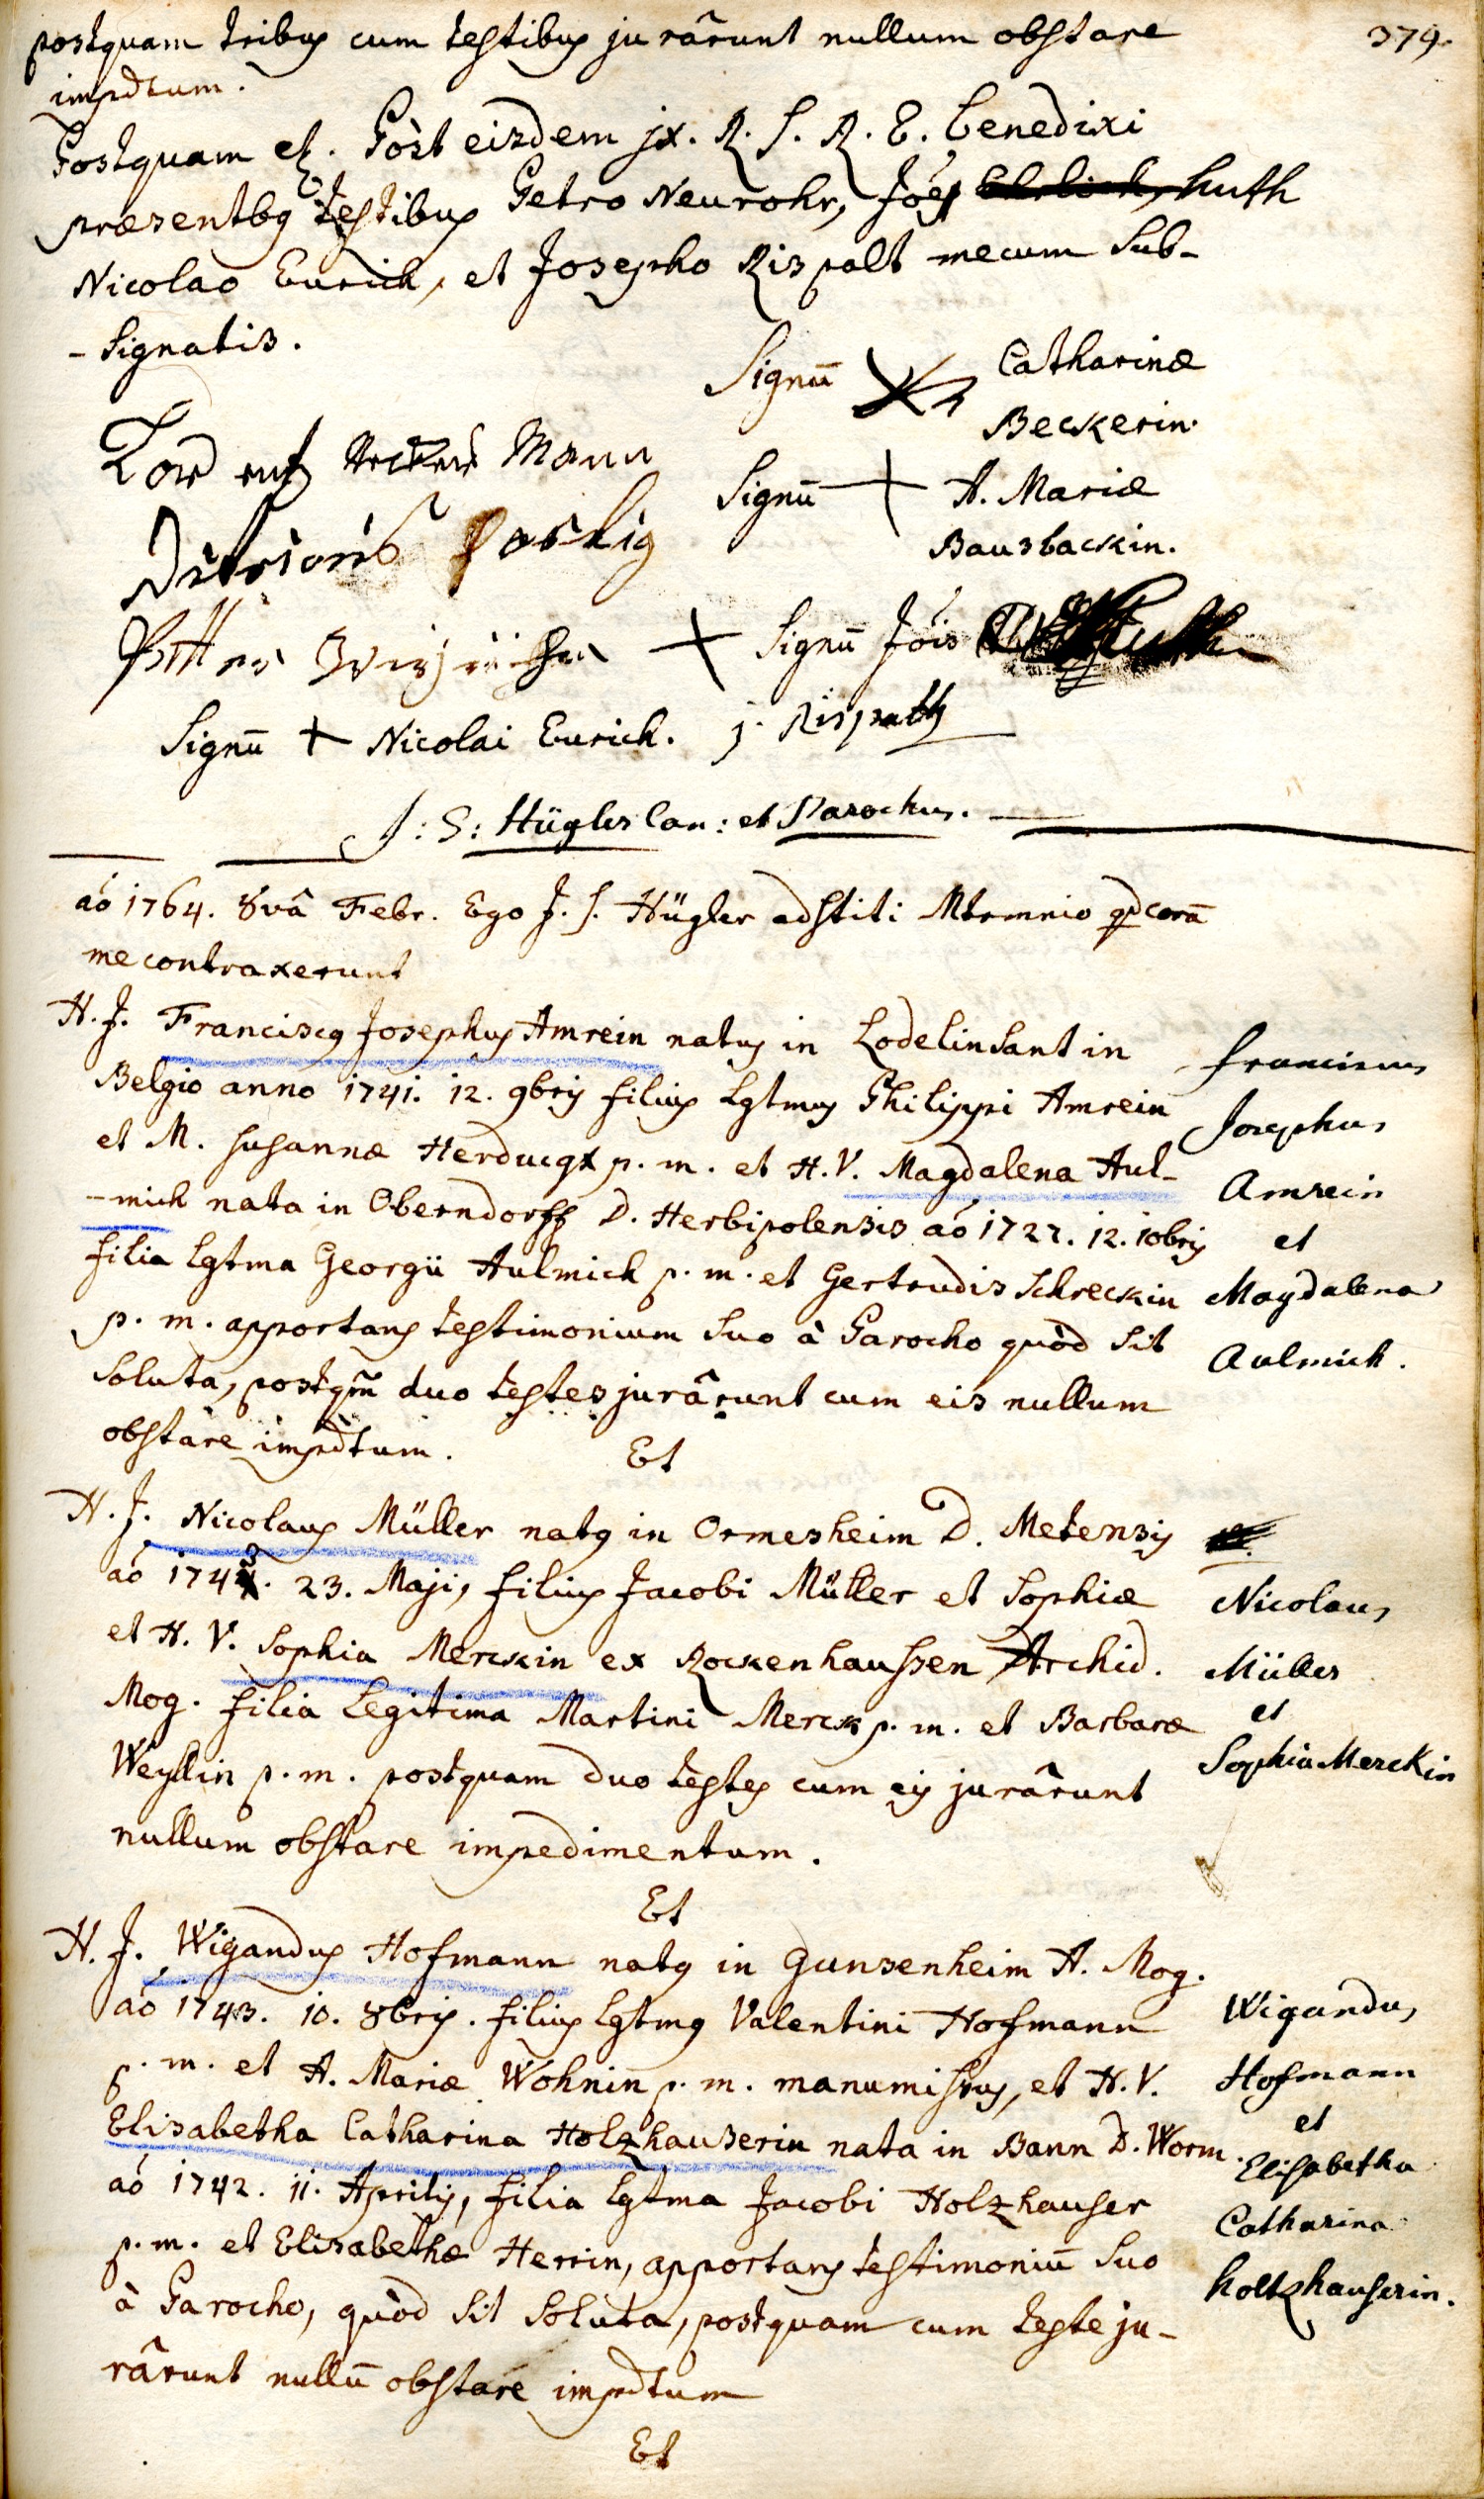 379.
postquam tribus cum testibus jurârunt nullum obstare
impdtum.
Postquam et. Pòst eisdem jx. R. S. R. E. benedixi
præsentbg testibus Petro Neurohr, Jóes huth
Nicolao Eurich, et Josepho Rispalt mecum sub-
-signatis.
Signū Catharinæ
Beckerin.
Mann
Signū + A. Mariæ
Bausbackin.
+ Signū Jóis
Signū + Nicolai Eurich. j. Rispalt
J: S: Hügler Can: et Parochus.
aó 1764. 8vâ Febr. Ego J. S. Hügler adstiti Mtrmnio qd corā
me contraxerunt
H. J. Franciscg Josephus Amrein natus in Lodelinsant in
Belgio anno 1741. 12. 9bris filius Lgtmus Philippi Amrein
et M. Susannæ Herducqx p. m. et H. V. Magdalena Aul-
-mich nata in Oberndorff D. Herbipolensis aó 1727. 12. 10bris
filia Lgtma Georgii Aulmich p. m. et Gertrudis Schreckin
p. m. apportans testimonium suo à Parocho quòd sit
soluta, postqm̃ duo testes jurârunt cum eis nullum
obstare impdtum.
Franciscus
Josephus
Amrein
et
Magdalena
Aulmich.
Et
H. J. Nicolaus Müller natg in Ormesheim D. Metensis
aó 1742. 23. Maji, filius Jacobi Müller et Sophiæ
et H. V. Sophia Merckin ex Rockenhaussen Archid.
Mog. filia Legitima Martini Merck p. m. et Barbaræ
Weyllin p. m. postquam duo testes cum eis jurârunt
nullum obstare impedimentum.
Nicolaus
Müller
et
Sophia Merckin
Et
H. J. Wigandus Hofmann natg in Gunsenheim A. Mog.
aó 1743. 10. 8bris. filius Lgtmg Valentini Hofmann
p. m. et A. Mariæ Wohnin p. m. manumissus, et H. V.
Elisabetha Catharina Holzhauserin nata in Bann D. Worm.
aó 1742. 11. Aprilis, filia Lgtma Jacobi Holzhauser
p. m. et Elisabethæ Herrin, apportans testimoniū suo
à Parocho, quòd sit soluta, postquam cum teste ju-
rârunt nullū obstare impdtum
Wigandus
Hofmann
et
Elisabetha
Catharina
holtzhauserin.
Et